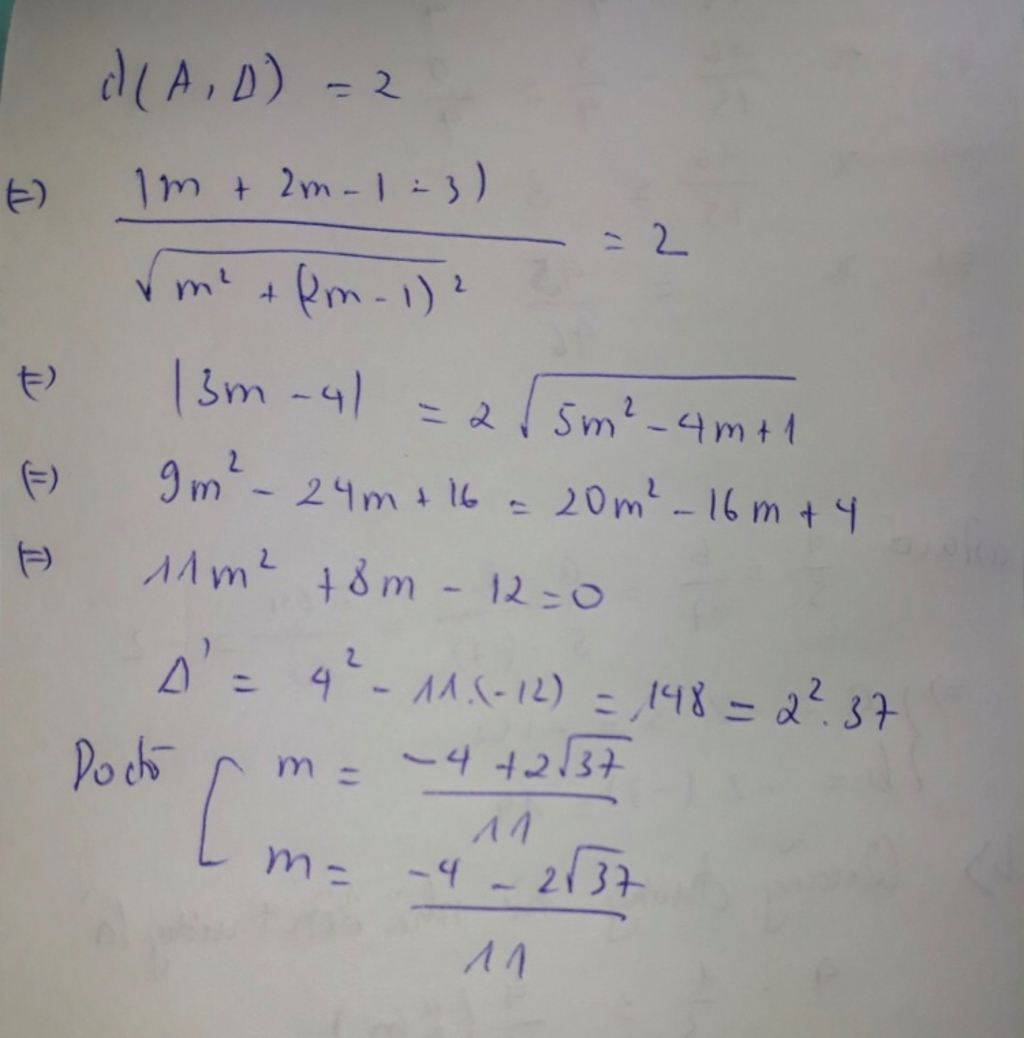 d(A, Δ) = 2
(=) |m + 2m - 1 - 3| / √(m² + (2m - 1)²) = 2
(=) |3m - 4| = 2√(5m² - 4m + 1)
(=) 9m² - 24m + 16 = 20m² - 16m + 4
(=) 11m² + 8m - 12 = 0
Δ' = 4² - 11.(-12) = 148 = 2². 37
Do đó [ m = (-4 + 2√37) / 11
m = (-4 - 2√37) / 11